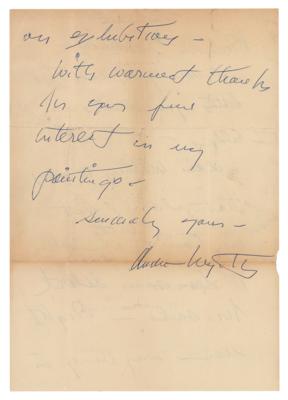 on exhibitions –
with warmest thanks
for your fine
interest in my
paintings –
sincerely yours –
Andrew Wyeth